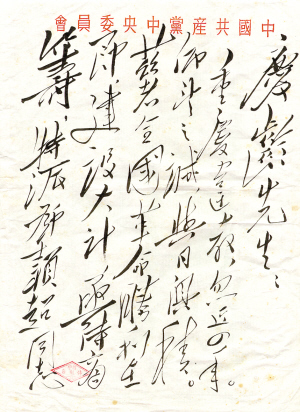 中國共產黨中央委員會
慶齡先生：
重慶違教，忽近四年。
仰望之誠，與日俱積。
茲者全國革命勝利在
即，建設大計，亟待商
籌，特派鄧穎超同志